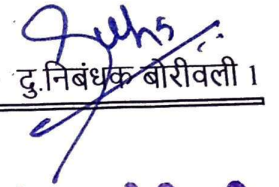 दु.निबंधक बोरीवली 1